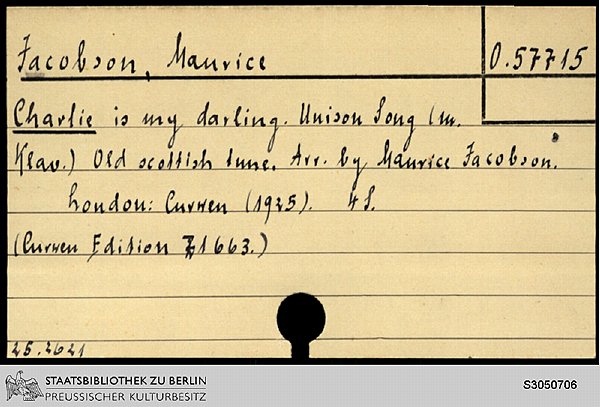 Jacobson, Maurice
O.57715
Charlie is my darling. Unison Song (m.
Klav.) Old scottish tune. Arr. by Maurice Jacobson.
London: Curwen (1925). 4 S.
(Curwen Edition 71663.)
25.2621
STAATSBIBLIOTHEK ZU BERLIN
PREUSSISCHER KULTURBESITZ
S3050706